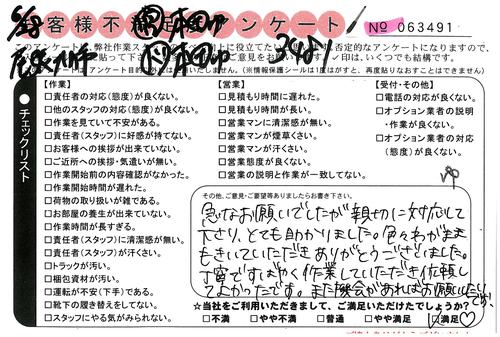 お客様不満足度アンケート
№ 063491
このアンケートは、弊社作業ス
チェックリスト
【作業】
□責任者の対応(態度)が良くない。
□他のスタッフの対応(態度)が良くない。
□作業を見ていて不安がある。
□責任者(スタッフ)に好感が持てない。
□お客様への挨拶が出来ていない。
□ご近所への挨拶・気遣いが無い。
□作業開始前の内容確認がなかった。
□作業開始時間が遅れた。
□荷物の取り扱いが雑である。
□お部屋の養生が出来ていない。
□作業時間が長すぎる。
□責任者(スタッフ)に清潔感が無い。
□責任者(スタッフ)が汗くさい。
□トラックが汚い。
□梱包資材が汚い。
□運転が不安(下手)である。
□靴下の履き替えをしてない。
□スタッフにやる気がみられない。
【営業】
□見積もり時間に遅れた。
□見積もり時間が長い。
□営業マンに清潔感が無い。
□営業マンが煙草くさい。
□営業マンが汗くさい。
□営業態度が良くない。
□営業の説明と作業が一致してない。
【受付・その他】
□電話の対応が良くない。
□オプション業者の説明
・作業が良くない。
□オプション業者の対応
(態度)が良くない。
その他、ご意見・ご要望等ありましたらお書き下さい。
急なお願いでしたが親切に対応して
下さり、とても助かりました。色々わがまま
もきいていただきありがとうございました。
丁寧ですばやく作業していただき依頼し
てよかったです。また機会があればお願いしたい
です!
☆当社をご利用いただきまして、ご満足いただけたでしょうか?
□不満 □やや不満 □普通 □やや満足 ☑満足♡